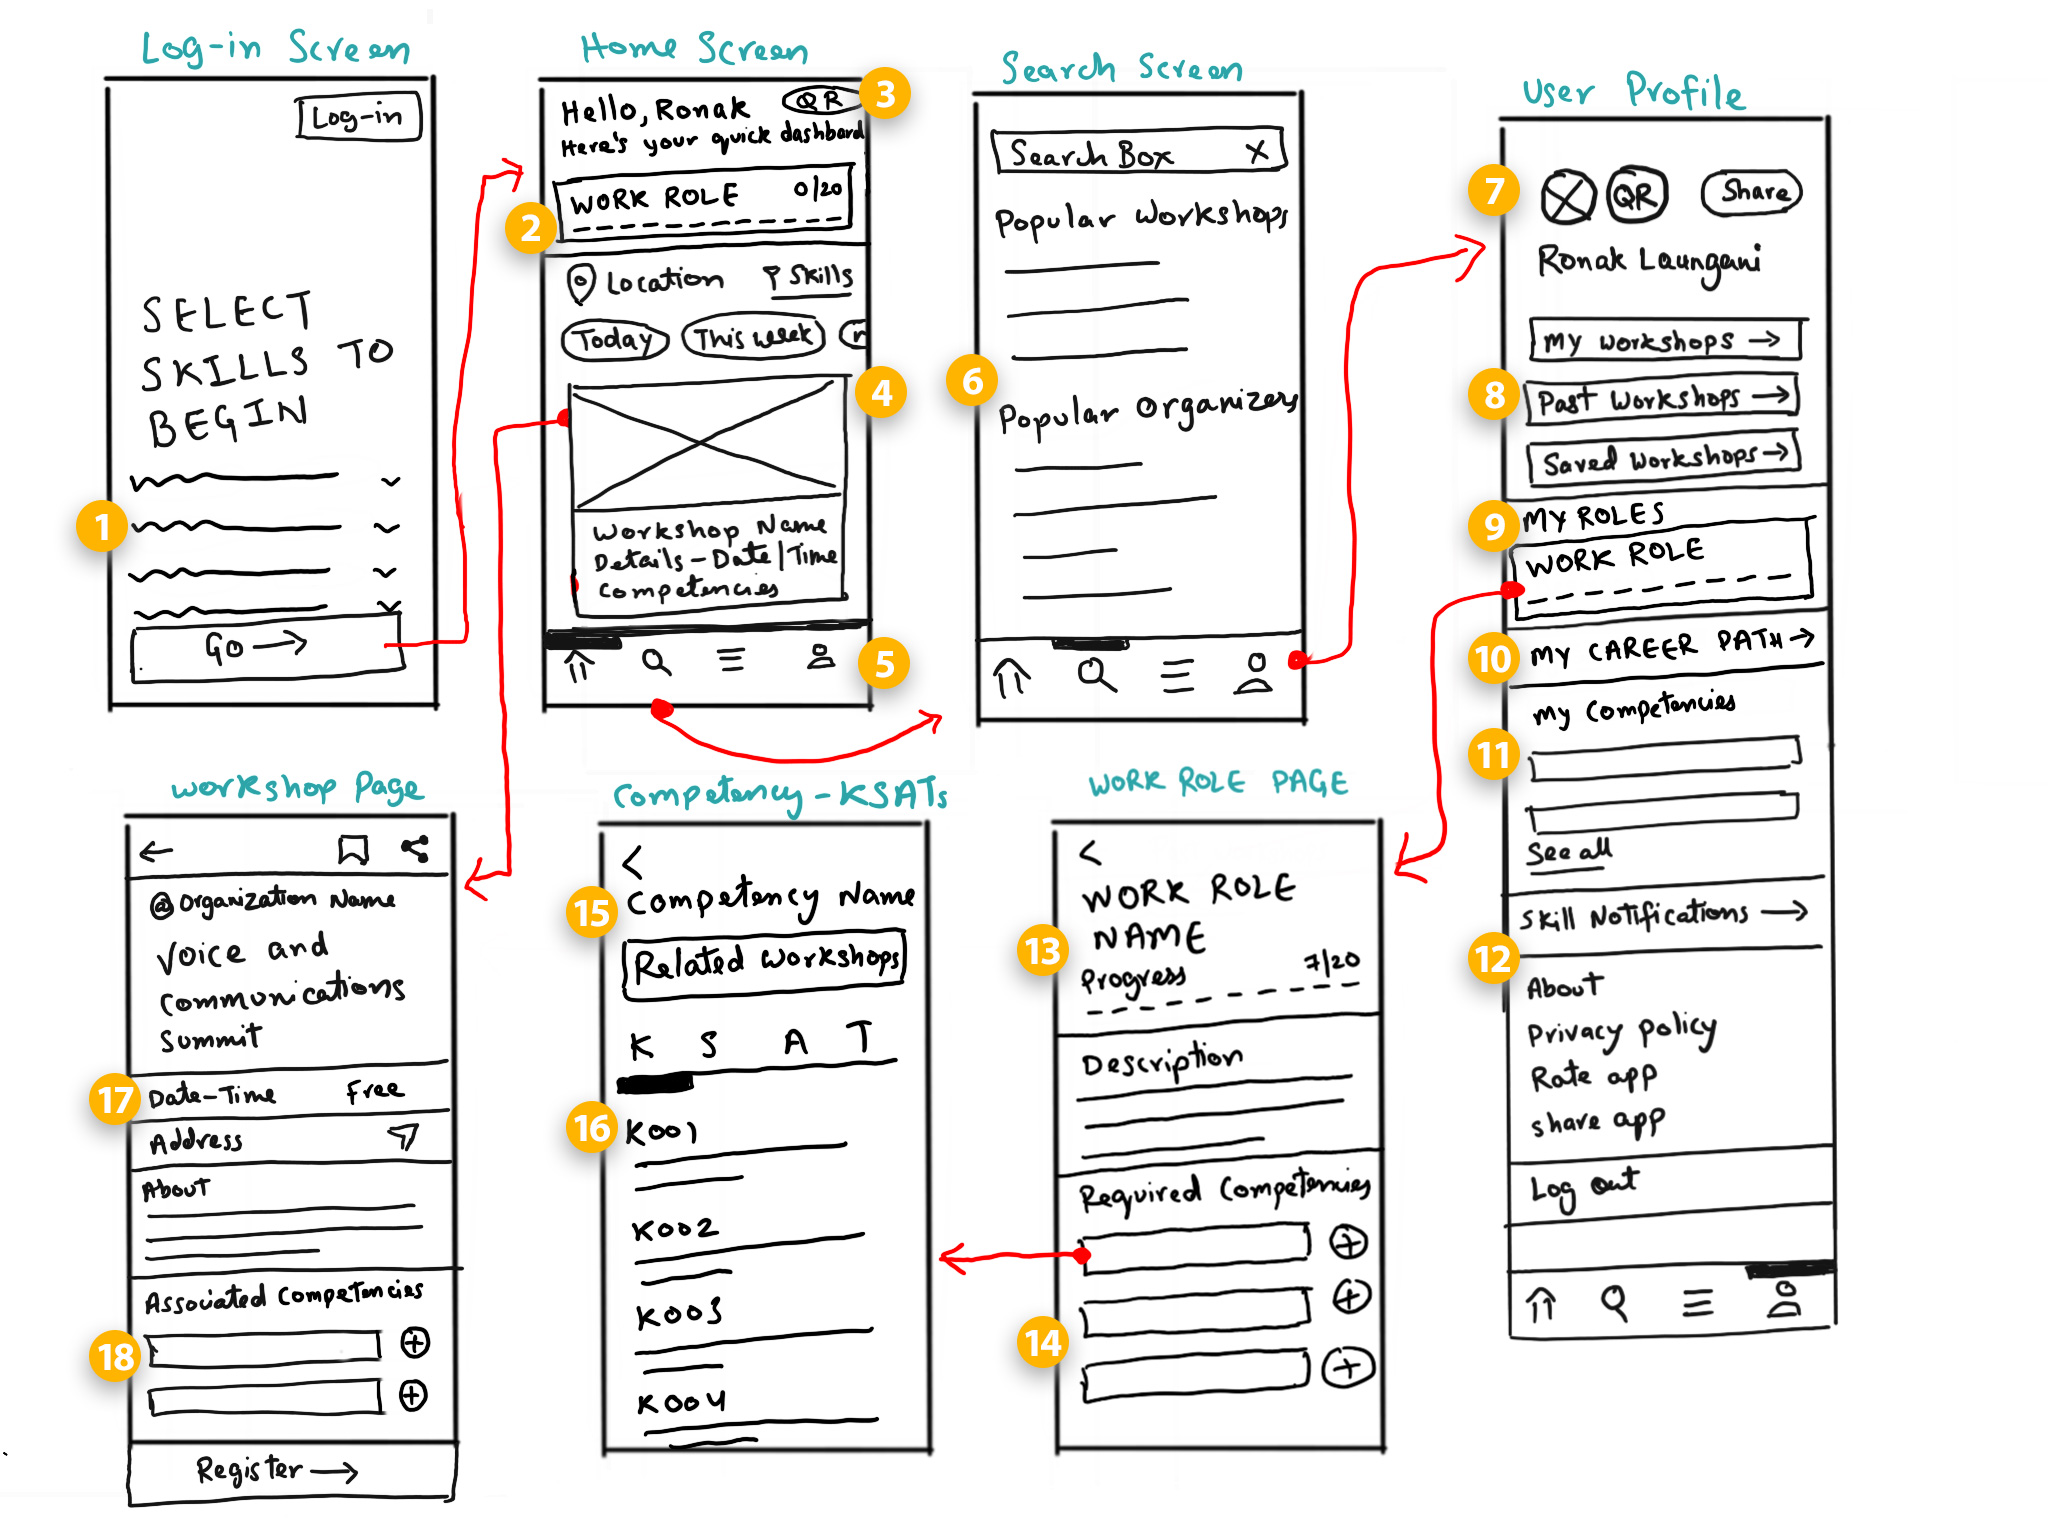 Log-in Screen
Log-in
SELECT
SKILLS TO
BEGIN
1
GO →
Home Screen
Hello, Ronak QR 3
Here's your quick dashboard
WORK ROLE 0/20
2
Location Skills
Today This week
4
Workshop Name
Details - Date | Time
Competencies
5
Search Screen
Search Box X
Popular Workshops
6
Popular Organizers
User Profile
7 QR Share
Ronak Laungani
My Workshops →
8 Past Workshops →
Saved Workshops →
9 MY ROLES
WORK ROLE
10 MY CAREER PATH →
My Competencies
11
See all
Skill Notifications →
12
About
Privacy policy
Rate app
Share app
Log out
Workshop Page
←
@ Organization Name
Voice and
Communications
Summit
17 Date-Time Free
Address
About
Associated Competencies
18
Register →
Competency - KSATs
<
15 Competency Name
Related Workshops
K S A T
16 K001
K002
K003
K004
WORK ROLE PAGE
<
WORK ROLE
13 NAME
Progress 7/20
Description
Required Competencies
14